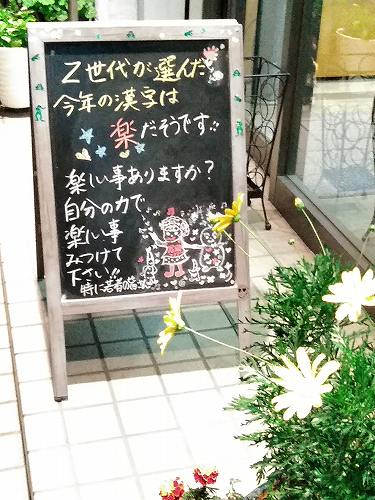 Z世代が選んだ
今年の漢字は
楽だそうです!!
楽しい事ありますか?
自分の力で
楽しい事
みつけて
下さい!!
特に若者の皆